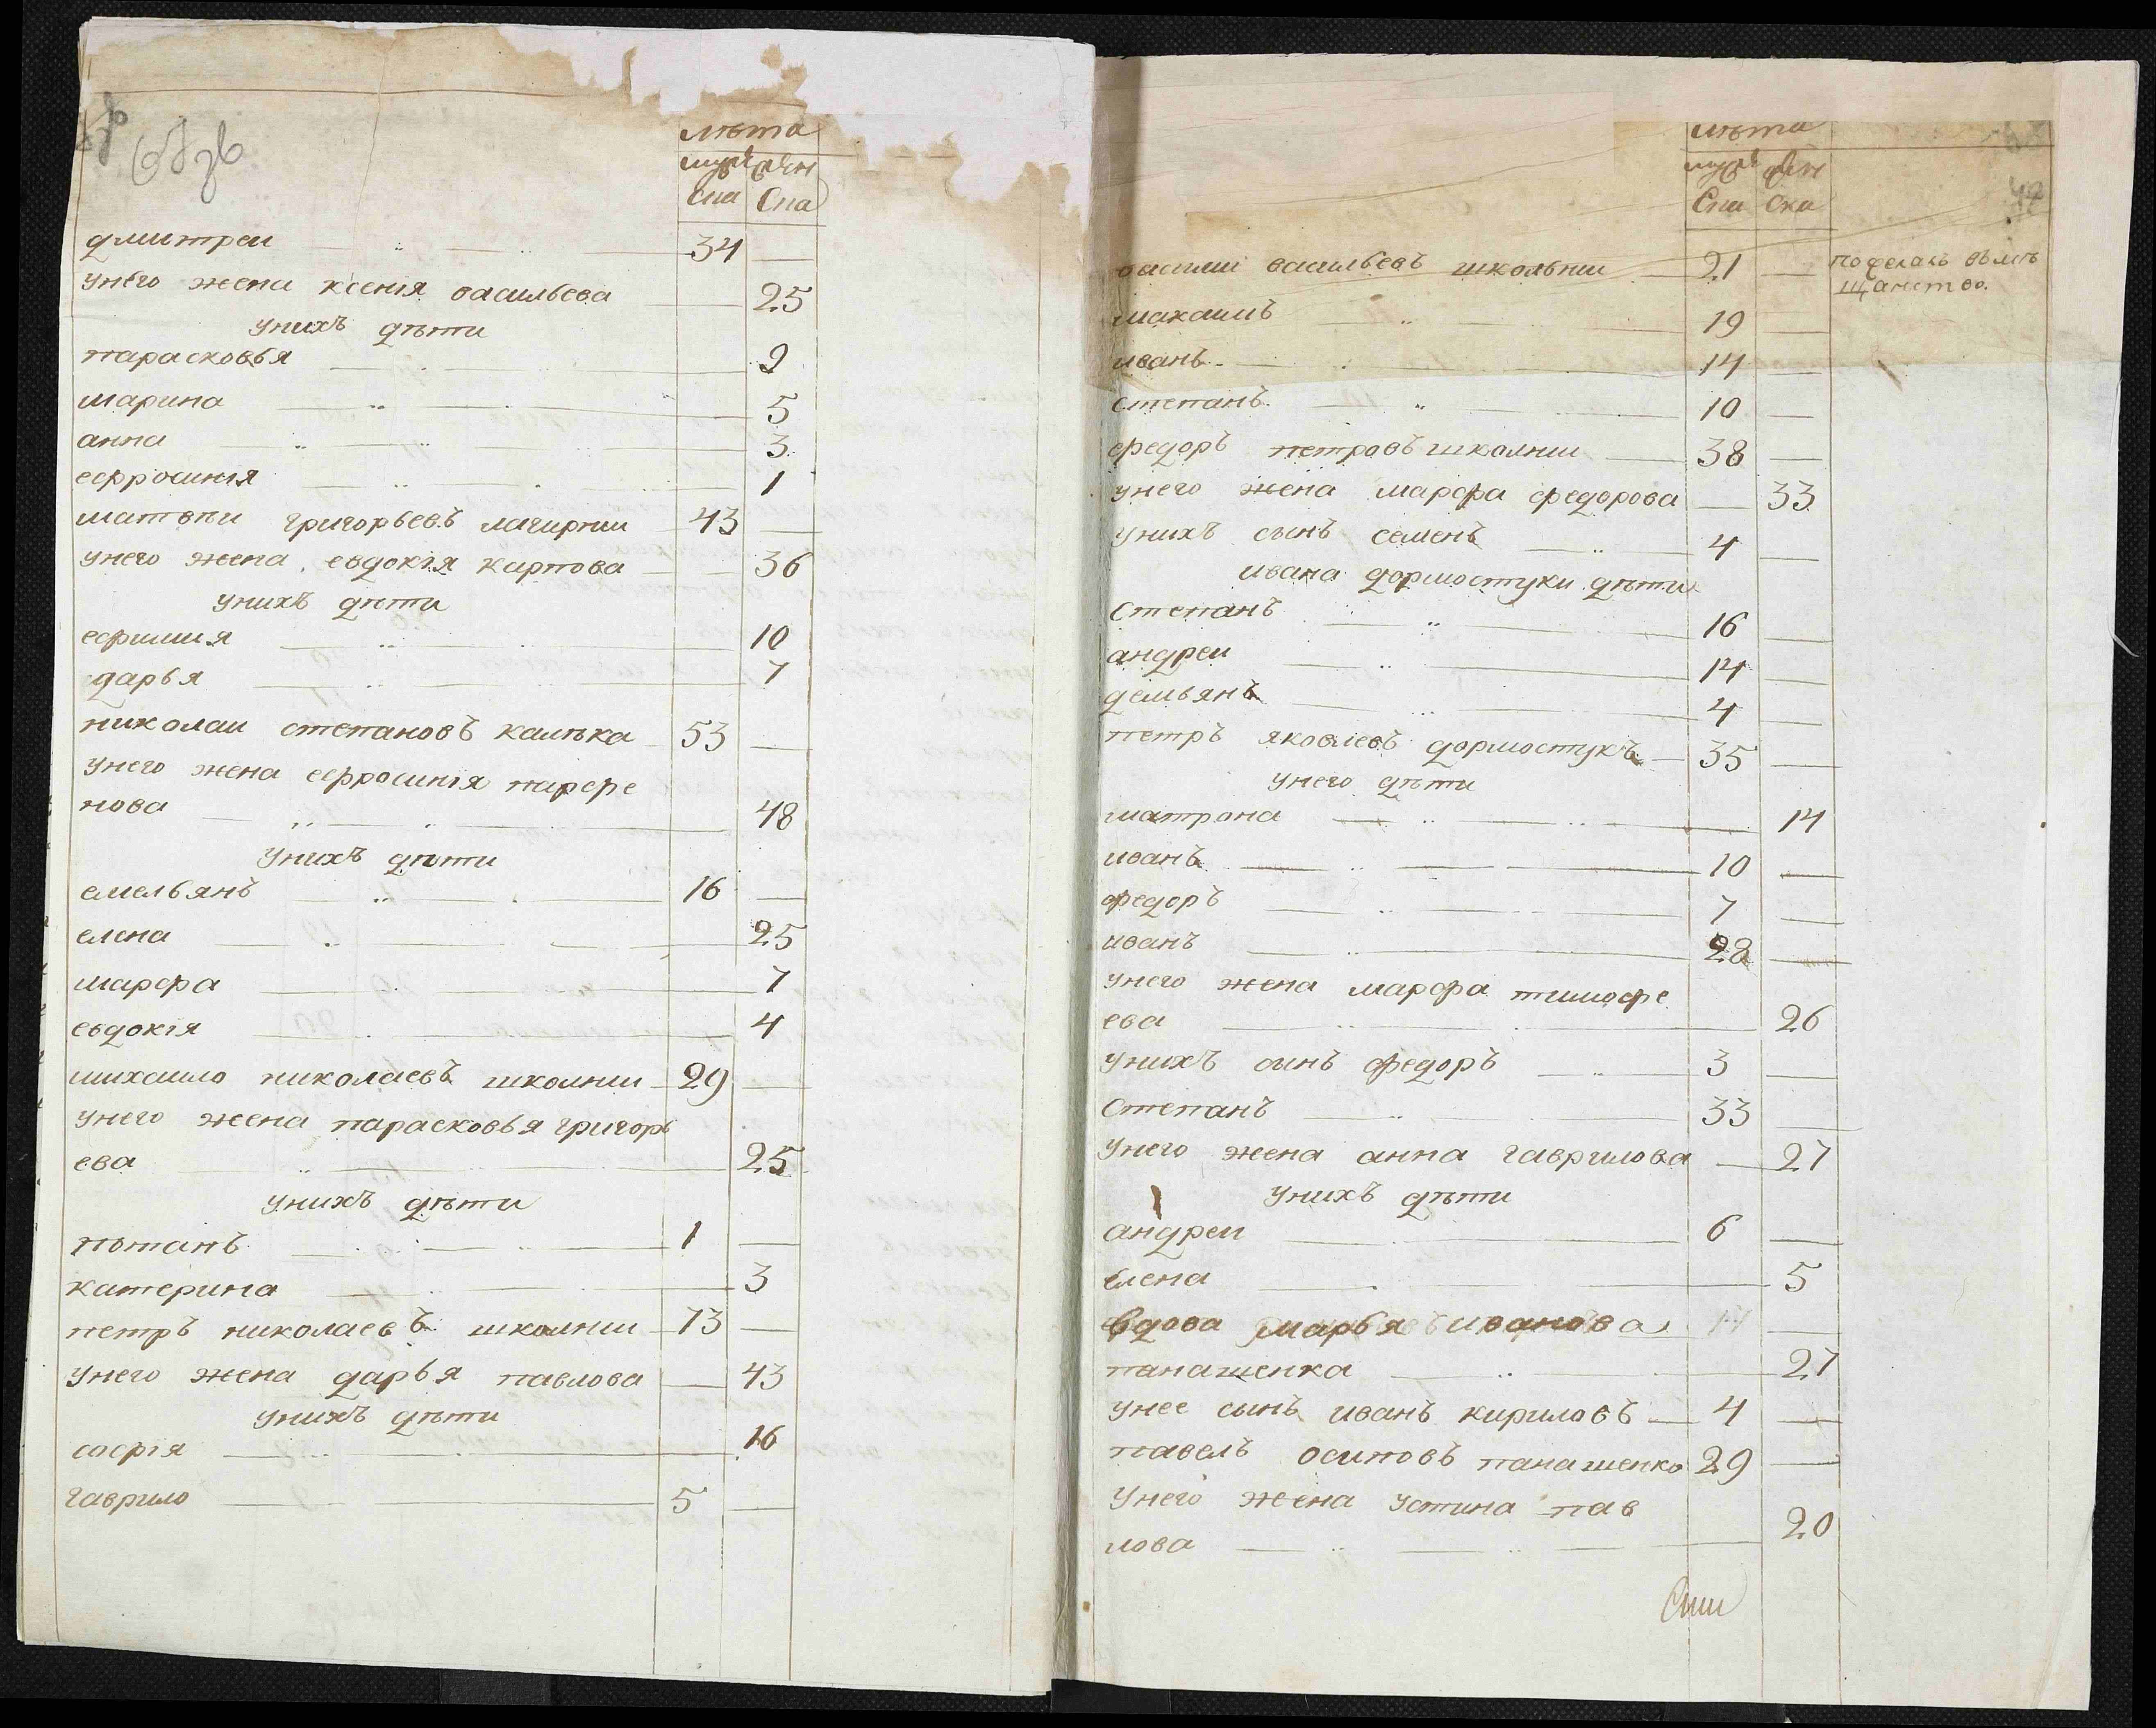 лѣта
муж жен
ска ска
дмитреи 34
унего жена ксенія васильева 25
унихъ дѣти
парасковья 9
марина 5
анна 3
ефросинія 1
матвѣи григорьевъ лагирнии 43
унего жена евдокія карпова 36
унихъ дѣти
ефимия 10
дарья 7
николаи степановъ калѣка 53
унего жена ефросинія парфе
нова 48
унихъ дѣти
емельянъ 16
елена 25
марфа 7
евдокія 4
михаило николаевъ школнии 29
унего жена парасковья григорь
ева 25
унихъ дѣти
потапъ 1
катерина 3
петръ николаевъ школнии 73
унего жена дарья павлова 43
унихъ дѣти
софія 16
гаврило 5
лѣта
муж жен
ска ска
васили васильевъ школьнии 21 поделакъ въмѣ
щанство.
максимъ 19
иванъ 14
степанъ 10
федоръ петровъ школнии 38
унего жена марфа федорова 33
унихъ сынъ семенъ 4
ивана дормостуки дѣти
степанъ 16
андреи 14
демьянъ 4
петръ яковлевъ дормостукъ 35
унего дѣти
матрона 14
иванъ 10
федоръ 7
иванъ 28
унего жена марфа тимофе
ева 26
унихъ сынъ федоръ 3
степанъ 33
унего жена анна гаврилова 27
унихъ дѣти
андреи 6
елена 5
вдова марья иванова
панашенка 27
унее сынъ иванъ кириловъ 4
павелъ осиповъ панашенко 29
унего жена устина пав
лова 20